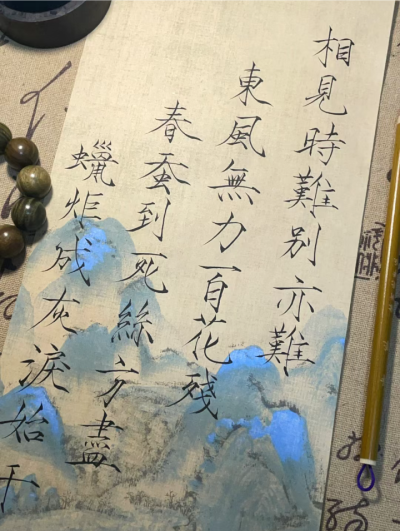 相見時難别亦難
東風無力百花殘
春蚕到死絲方盡
蠟炬成灰淚始干